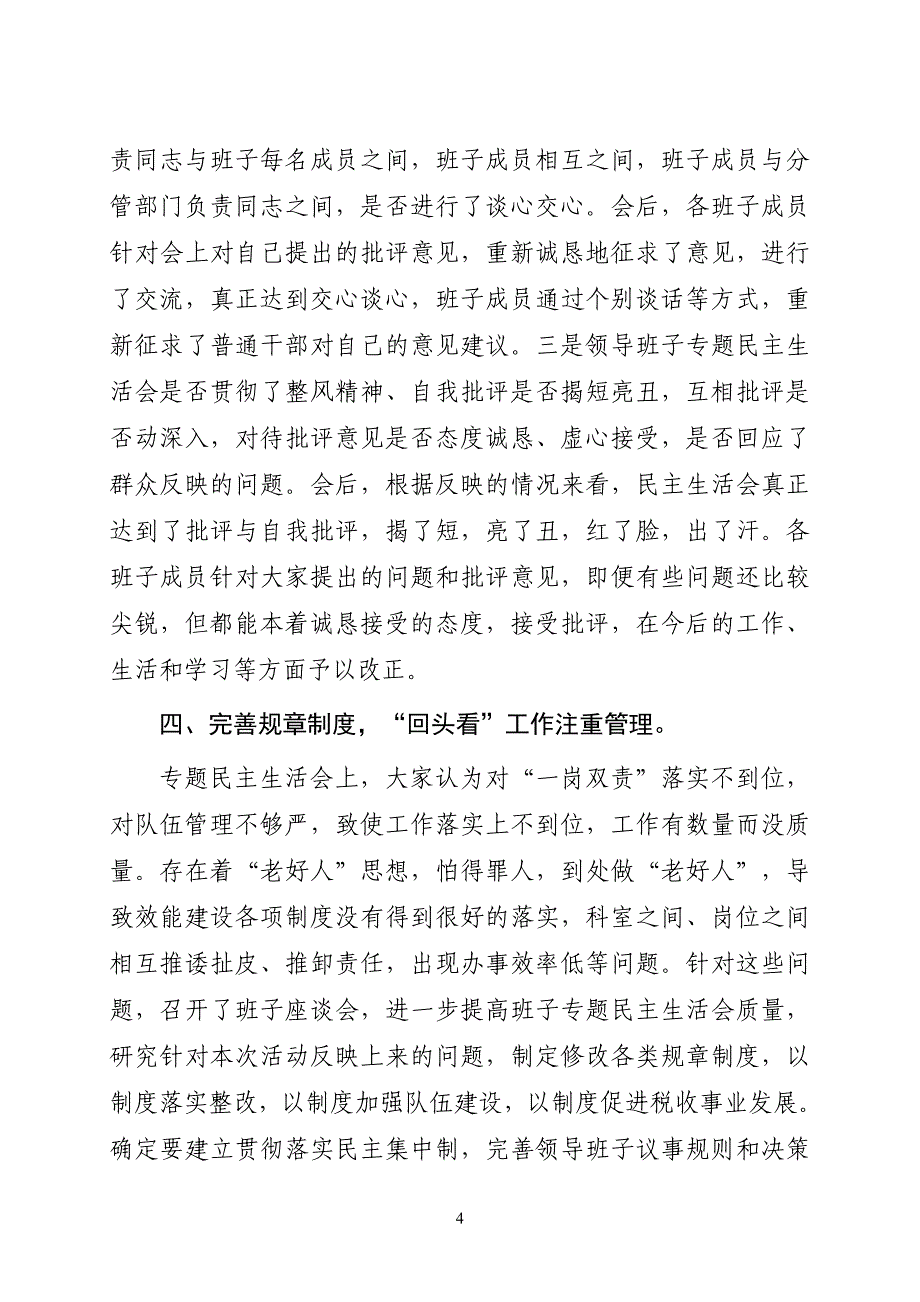 责同志与班子每名成员之间，班子成员相互之间，班子成员与分
管部门负责同志之间，是否进行了谈心交心。会后，各班子成员
针对会上对自己提出的批评意见，重新诚恳地征求了意见，进行
了交流，真正达到交心谈心，班子成员通过个别谈话等方式，重
新征求了普通干部对自己的意见建议。三是领导班子专题民主生
活会是否贯彻了整风精神、自我批评是否揭短亮丑，互相批评是
否动深入，对待批评意见是否态度诚恳、虚心接受，是否回应了
群众反映的问题。会后，根据反映的情况来看，民主生活会真正
达到了批评与自我批评，揭了短，亮了丑，红了脸，出了汗。各
班子成员针对大家提出的问题和批评意见，即便有些问题还比较
尖锐，但都能本着诚恳接受的态度，接受批评，在今后的工作、
生活和学习等方面予以改正。
四、完善规章制度，“回头看”工作注重管理。
专题民主生活会上，大家认为对“一岗双责”落实不到位，
对队伍管理不够严，致使工作落实上不到位，工作有数量而没质
量。存在着“老好人”思想，怕得罪人，到处做“老好人”，导
致效能建设各项制度没有得到很好的落实，科室之间、岗位之间
相互推诿扯皮、推卸责任，出现办事效率低等问题。针对这些问
题，召开了班子座谈会，进一步提高班子专题民主生活会质量，
研究针对本次活动反映上来的问题，制定修改各类规章制度，以
制度落实整改，以制度加强队伍建设，以制度促进税收事业发展。
确定要建立贯彻落实民主集中制，完善领导班子议事规则和决策
4